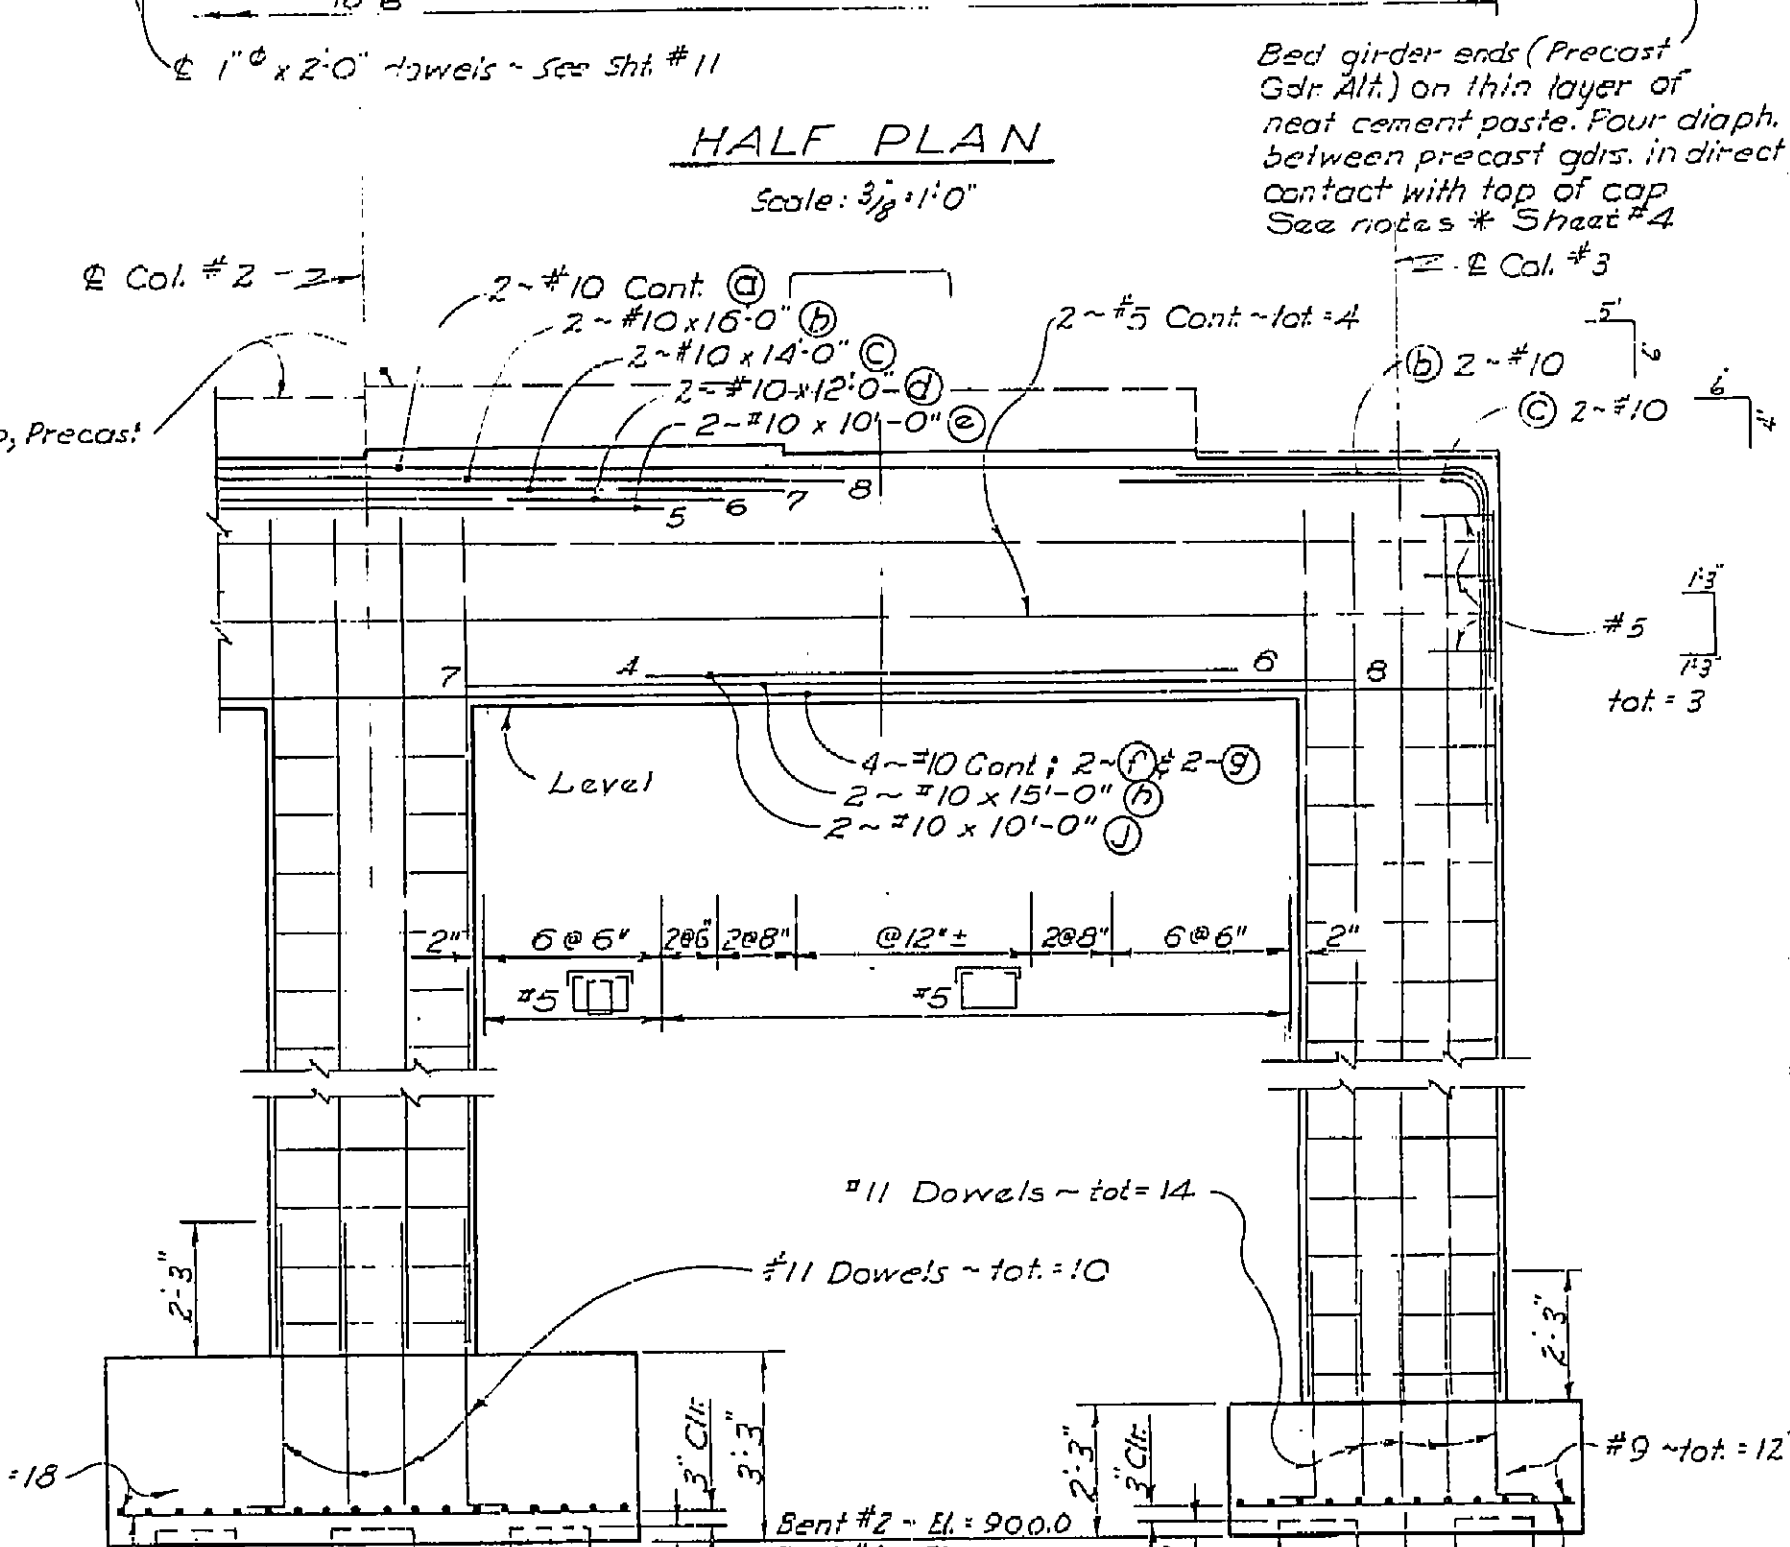 10'-8"
℄ 1"ϕ x 2'-0" dowels ~ See Sht. #11
Bed girder ends (Precast
Gdr. Alt.) on thin layer of
neat cement paste. Pour diaph.
between precast gdrs. in direct
contact with top of cap
See notes * Sheet #4
HALF PLAN
Scale: 3/8"=1'-0"
℄ Col. #2
℄ Col. #3
2~#10 Cont. (a)
2~#10 x 16'-0" (b)
2~#10 x 14'-0" (c)
2~#10 x 12'-0" (d)
2~#10 x 10'-0" (e)
2~#5 Cont.~tot.=4
5'
(b) 2~#10
6'
(c) 2~#10
4'
Precast
8
7
6
5
#5
1'-3"
1'-3"
tot. = 3
7
4
6
8
Level
4~#10 Cont; 2~(f) & 2~(g)
2~#10 x 15'-0" (h)
2~#10 x 10'-0" (j)
2"
6@6"
2@6"
2@8"
@12"±
2@8"
6@6"
2"
#5
#5
#11 Dowels ~ tot = 14
#11 Dowels ~ tot. = 10
2'-3"
2'-3"
=18
3" Clr.
3'-3"
2'-3"
3" Clr.
#9 ~tot. = 12
Bent #2 ~ El. = 900.0